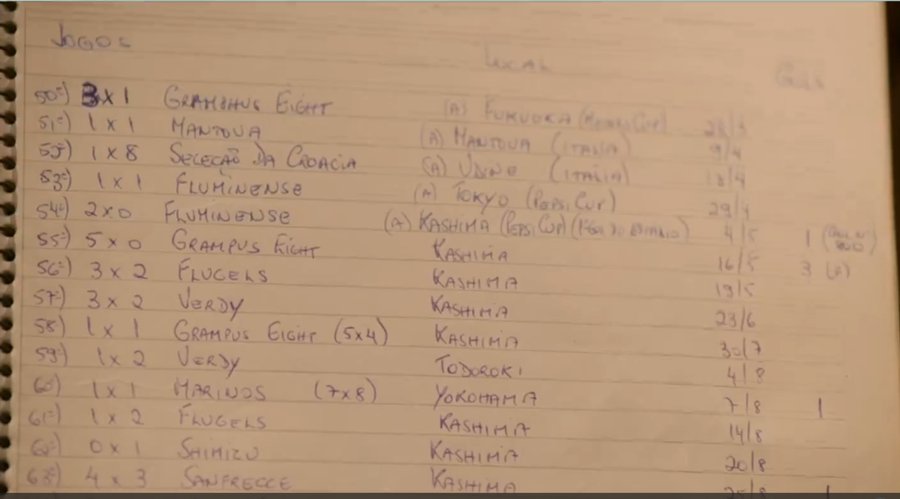 JOGOS LOCAL GOLS
50º) 3 x 1 GRAMPHUS EIGHT (A) FUKUOKA (PEPSI CUP)
51º) 1 x 1 MANTOVA (A) MANTOVA (ITALIA) 9/4
1 x 8 SELEÇÃO DA CROACIA (A) UDINE (ITALIA) 18/4
53º) 1 x 1 FLUMINENSE (A) TOKYO (PEPSI CUP) 29/4
54º) 2 x 0 FLUMINENSE (A) KASHIMA (PEPSI CUP) 4/5 1
55º) 5 x 0 GRAMPUS EIGHT KASHIMA 16/5 3
56º) 3 x 2 FLUGELS KASHIMA 19/5
57º) 3 x 2 VERDY KASHIMA 23/6
58º) 1 x 1 GRAMPUS EIGHT (5x4) KASHIMA 30/7
59º) 1 x 2 VERDY TODOROKI 4/8
60º) 1 x 1 MARINOS (7x8) YOKOHAMA 7/8 1
61º) 1 x 2 FLUGELS KASHIMA 14/8
62º) 0 x 1 SHIMIZU KASHIMA 20/8
63º) 4 x 3 SANFRECCE KASHIMA 25/8 1